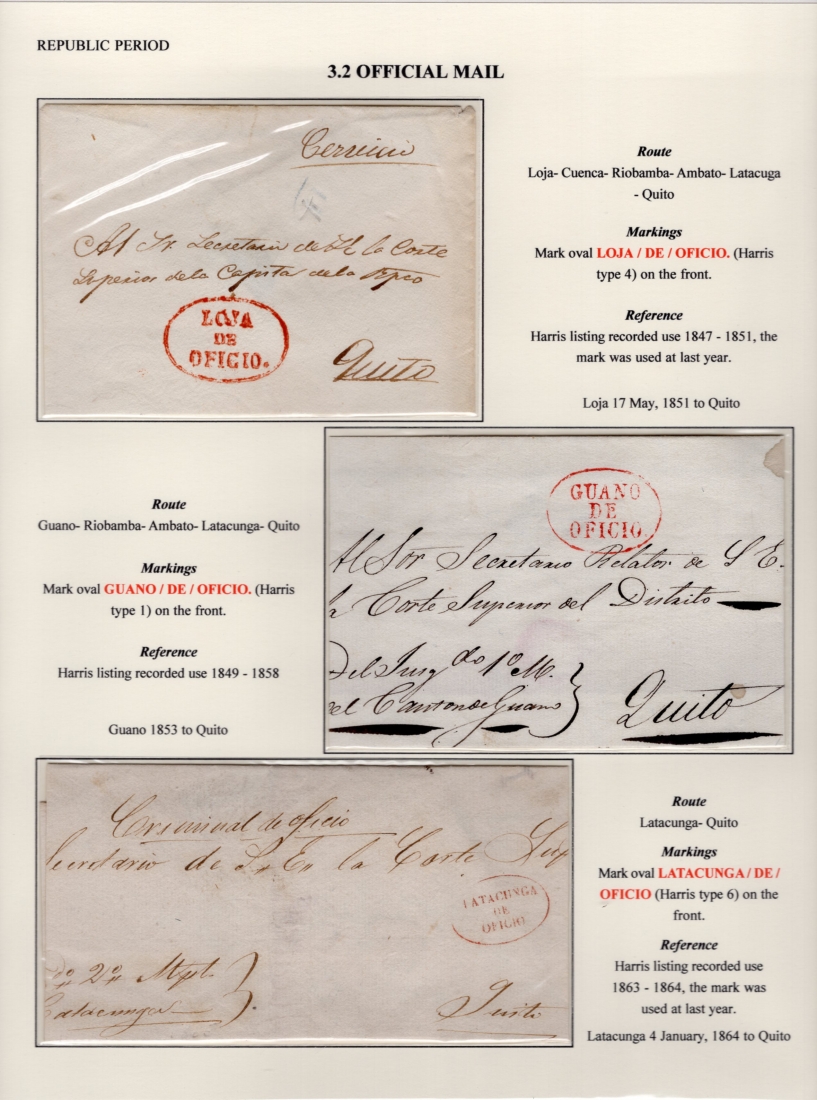 REPUBLIC PERIOD
3.2 OFFICIAL MAIL
Al Sr. Secretario de la Corte
Superior de la Capital de la
LOJA
DE
OFICIO.
Quito
Route
Loja- Cuenca- Riobamba- Ambato- Latacuga
- Quito
Markings
Mark oval LOJA / DE / OFICIO. (Harris
type 4) on the front.
Reference
Harris listing recorded use 1847 - 1851, the
mark was used at last year.
Loja 17 May, 1851 to Quito
Route
Guano- Riobamba- Ambato- Latacunga- Quito
Markings
Mark oval GUANO / DE / OFICIO. (Harris
type 1) on the front.
Reference
Harris listing recorded use 1849 - 1858
Guano 1853 to Quito
GUANO
DE
OFICIO.
Al Sor Secretario Relator de S E.
Corte Superior del Distrito
del Juzgdo 1º M.
del Canton de Guano
Quito
Criminal de oficio
Secretario de S. E. la Corte Sup
LATACUNGA
DE
OFICIO
do 2º Mpl.
Latacunga
Quito
Route
Latacunga- Quito
Markings
Mark oval LATACUNGA / DE /
OFICIO (Harris type 6) on the
front.
Reference
Harris listing recorded use
1863 - 1864, the mark was
used at last year.
Latacunga 4 January, 1864 to Quito